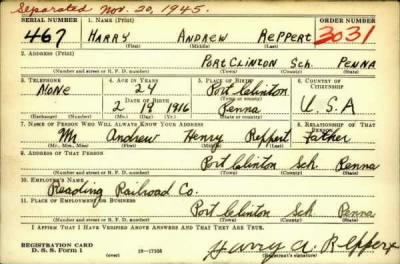 Separated Nov. 20, 1945.
SERIAL NUMBER 1. NAME (Print) ORDER NUMBER
467 HARRY ANDREW REPPERT 3031
(First) (Middle) (Last)
2. ADDRESS (Print)
PORT CLINTON Sch. PENNA
(Number and street or R. F. D. number) (Town) (County) (State)
3. TELEPHONE 4. AGE IN YEARS 5. PLACE OF BIRTH 6. COUNTRY OF CITIZENSHIP
NONE 24 Port Clinton
DATE OF BIRTH (Town or county)
2 19 1916 Penna U.S.A
(Exchange) (Number) (Mo.) (Day) (Yr.) (State or country)
7. NAME OF PERSON WHO WILL ALWAYS KNOW YOUR ADDRESS 8. RELATIONSHIP OF THAT PERSON
Mr Andrew Henry Reppert Father
(Mr., Mrs., Miss) (First) (Middle) (Last)
9. ADDRESS OF THAT PERSON
Port Clinton Sch Penna
(Number and street or R. F. D. number) (Town) (County) (State)
10. EMPLOYER'S NAME
Reading Railroad Co.
11. PLACE OF EMPLOYMENT OR BUSINESS
Port Clinton Sch Penna
(Number and street or R. F. D. number) (Town) (County) (State)
I AFFIRM THAT I HAVE VERIFIED ABOVE ANSWERS AND THAT THEY ARE TRUE.
REGISTRATION CARD
D. S. S. Form 1 Harry A. Reppert
(Registrant's signature)